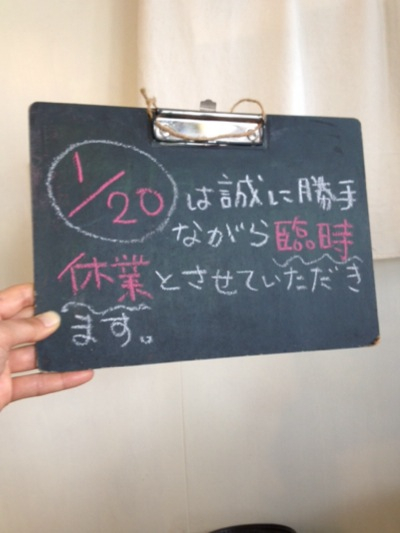 1/20 は誠に勝手
ながら臨時
休業とさせていただき
ます。